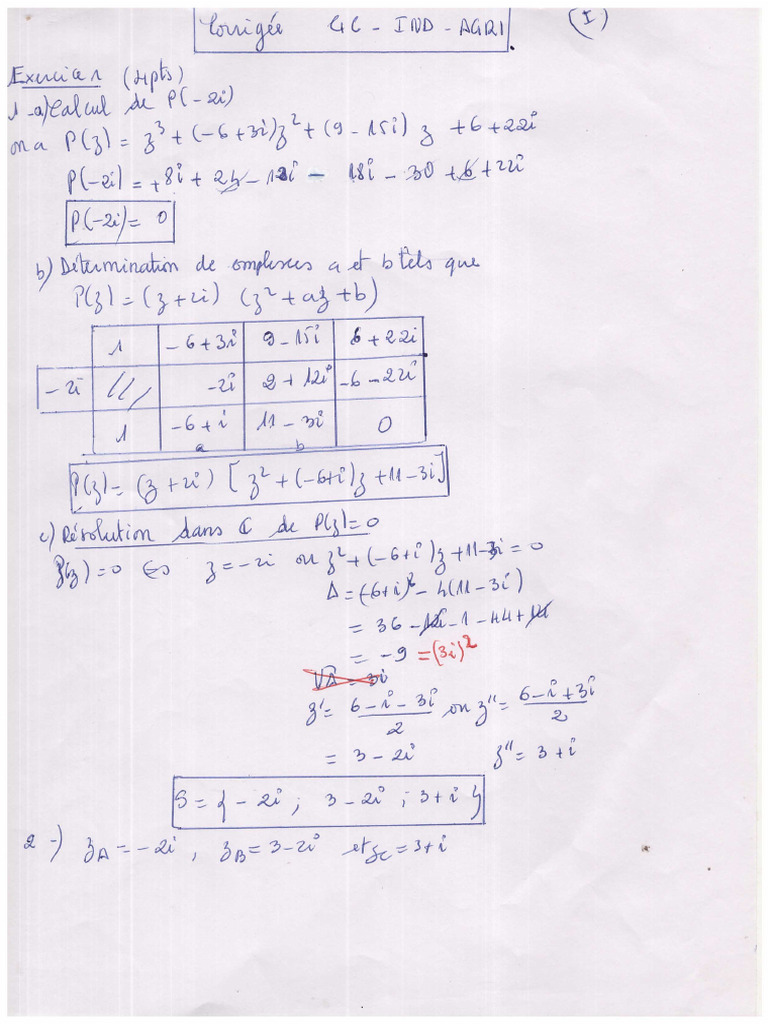 Corrigée GC - IND - AGRI. (I)
Exercice 1 (4pts)
1-a) Calcul de P(-2i)
on a P(z) = z³ + (-6+3i)z² + (9-15i) z + 6 + 22i
P(-2i) = +8i + 24 - 12i - 18i - 30 + 6 + 22i
P(-2i) = 0
b) Détermination de complexes a et b têls que
P(z) = (z+2i) (z² + az + b)
1 -6+3i 9-15i 6+22i
-2i /// -2i 2+12i -6-22i
1 -6+i 11-3i 0
a b
P(z) = (z+2i) [z² + (-6+i)z + 11-3i]
c) Résolution dans ℂ de P(z)=0
P(z)=0 ⇔ z=-2i ou z² + (-6+i)z + 11-3i = 0
Δ = (-6+i)² - 4(11-3i)
= 36 - 12i - 1 - 44 + 12i
= -9 = (3i)²
√Δ = 3i
z' = (6-i-3i)/2 ou z'' = (6-i+3i)/2
= 3-2i z'' = 3+i
S = {-2i ; 3-2i ; 3+i}
2-) zA = -2i , zB = 3-2i et zC = 3+i